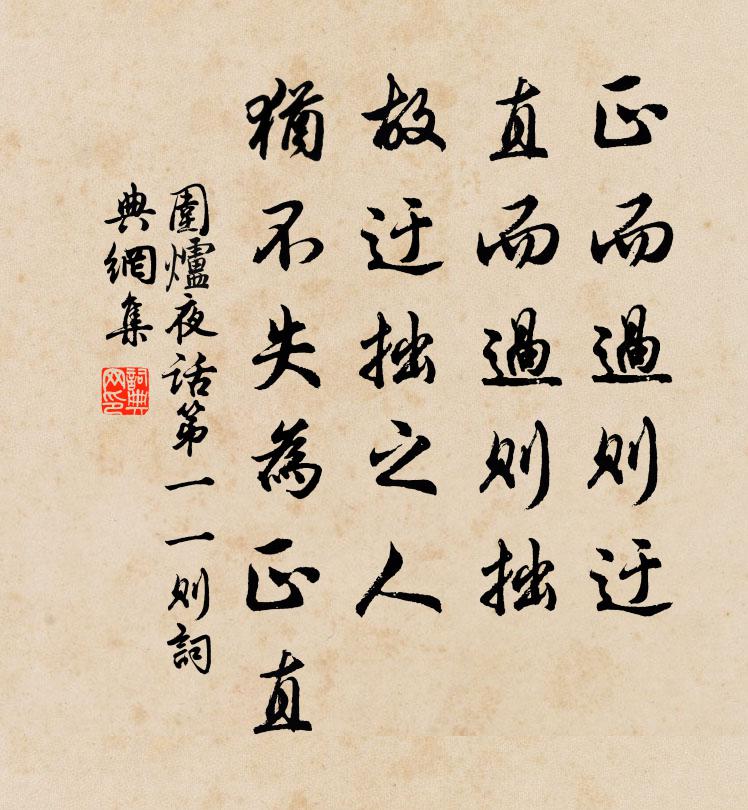 正而過則迂
直而過則拙
故迂拙之人
猶不失為正直
圍爐夜話第一一則詞
典網集
詞典網印